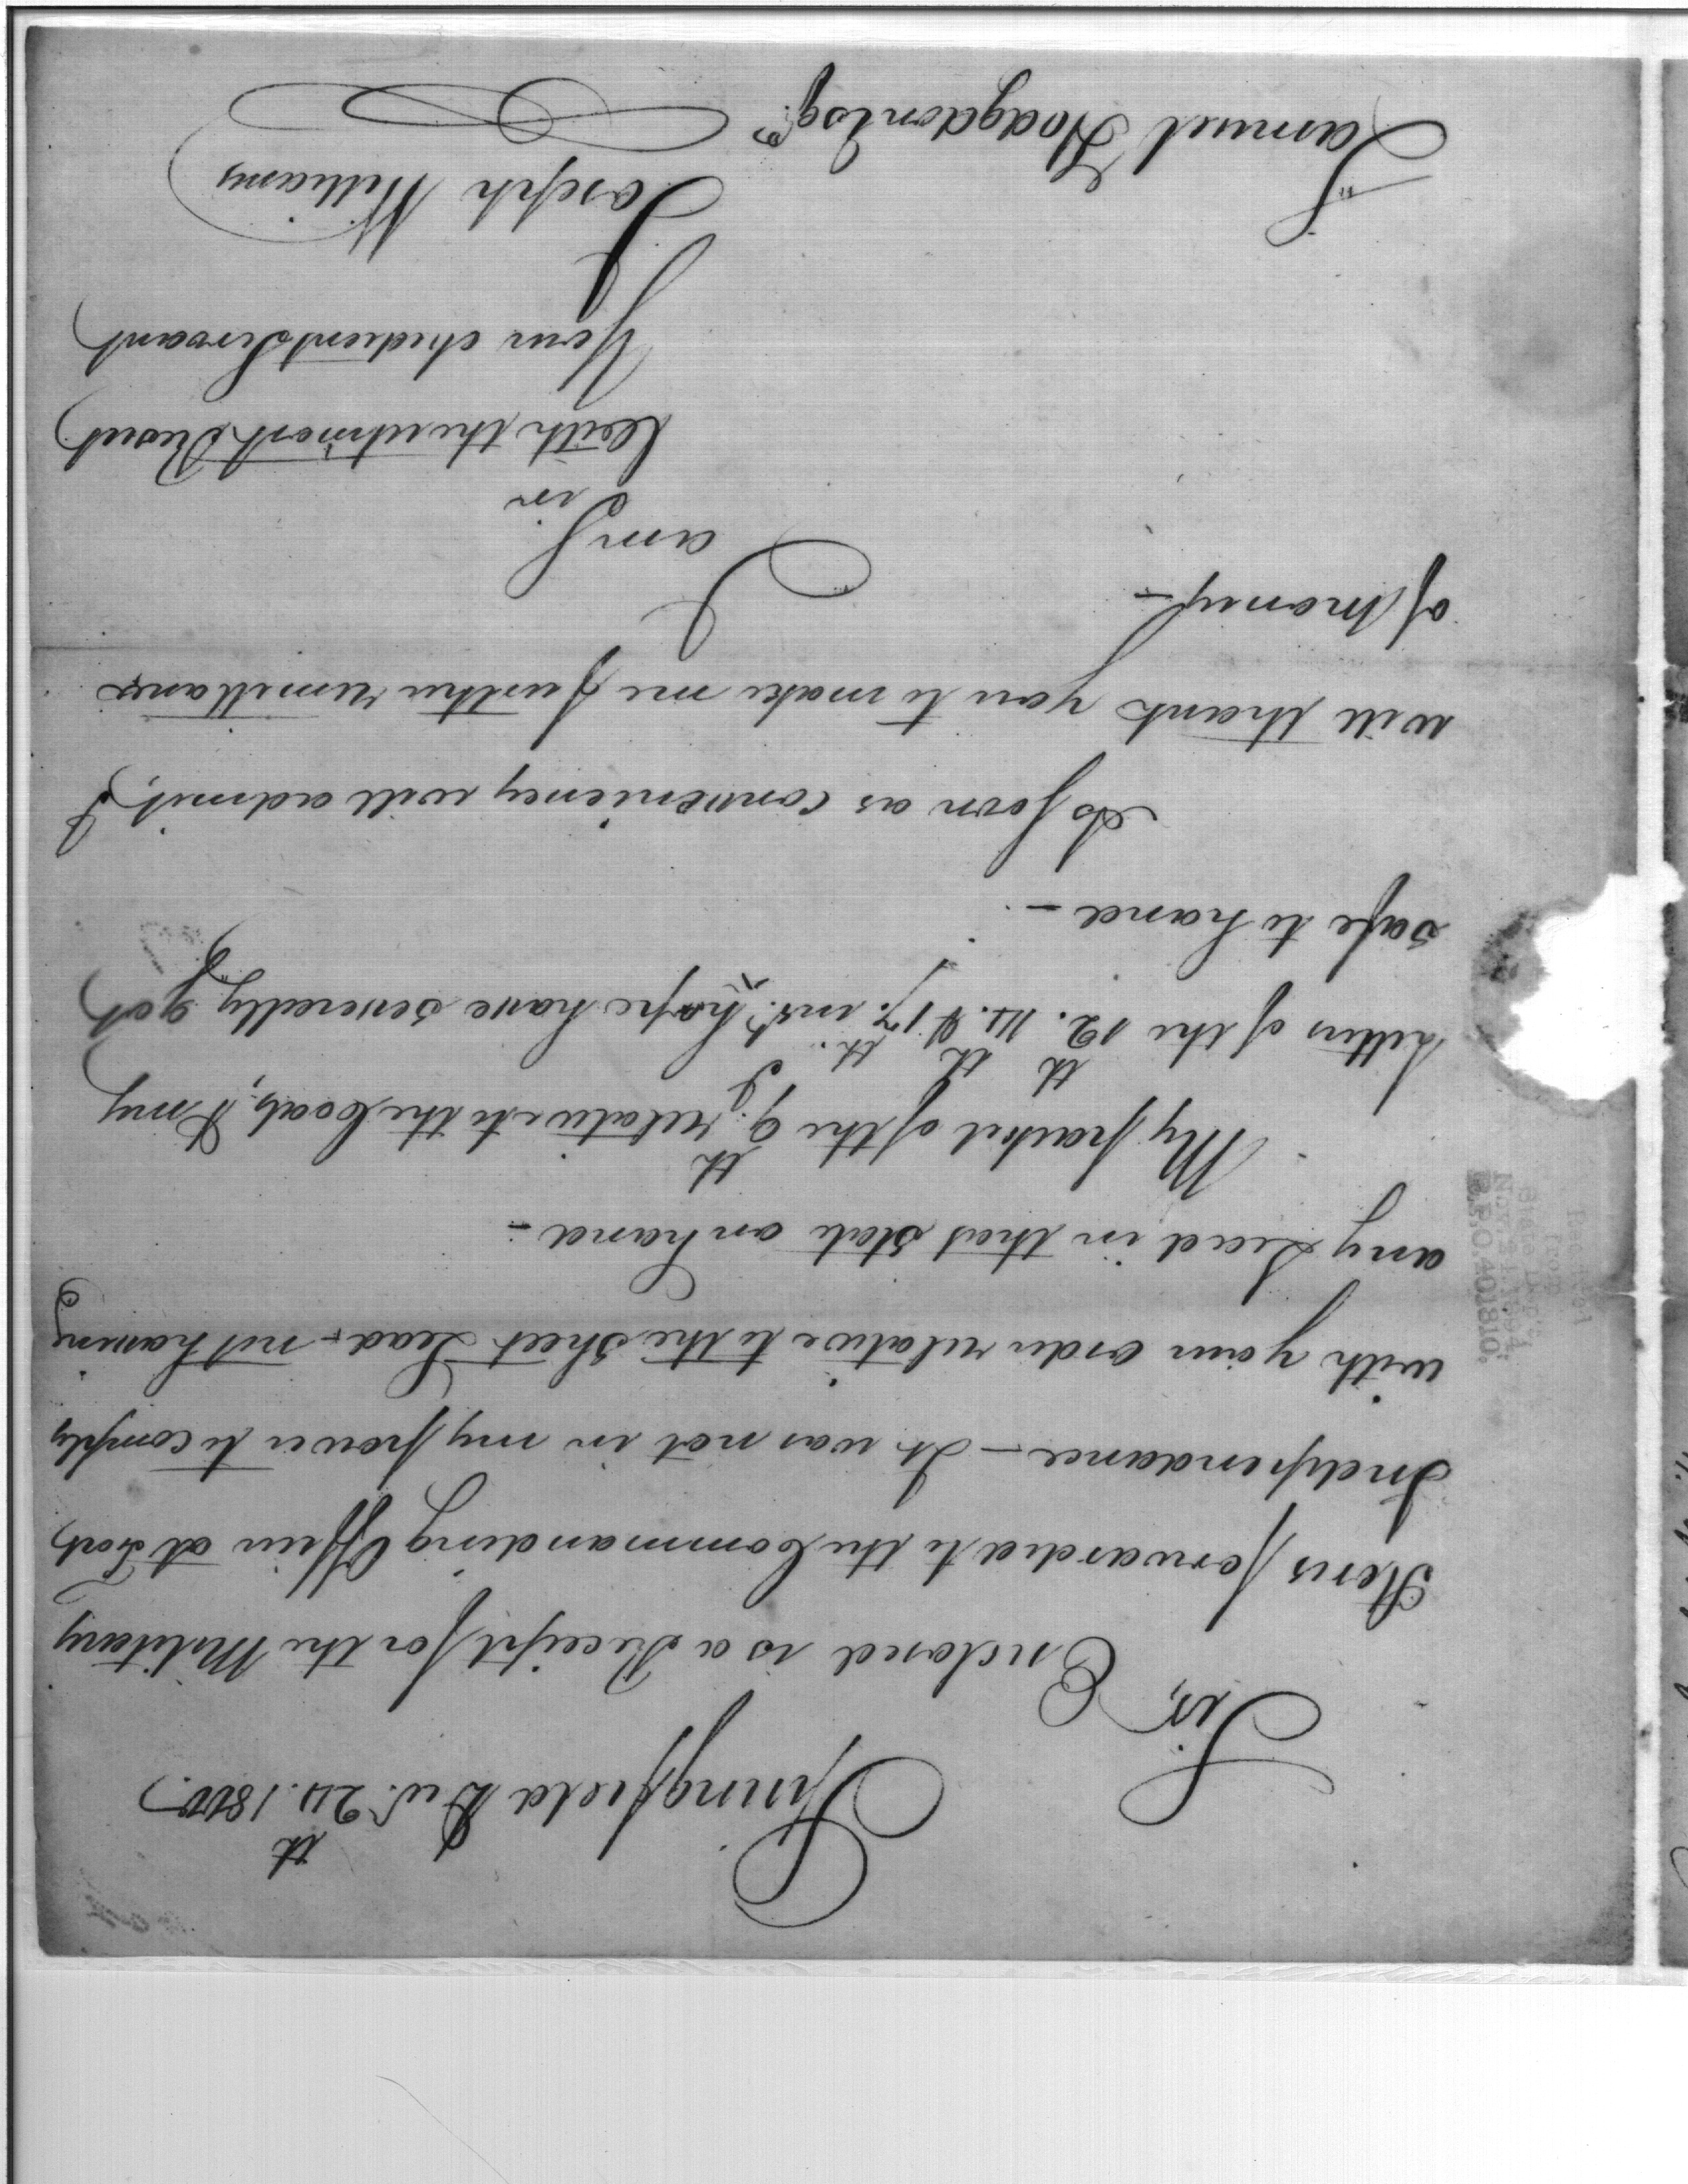 Springfield Decr. 24th. 1800.
Sir,
Enclosed is a Receipt for the Military
Stores forwarded to the Commanding Officer at Fort
Independance - It was not in my power to comply
with your order relative to the Sheet Lead - not having
any Lead in that State on hand -
My packet of the 9th. relative to the Coats, & my
Letters of the 12th. 14th. & 17th. inst. I hope have severelly got
safe to hand -
As soon as conveniency will admit, I
will thank you to make me further remittance
of money -
I am Sir
With the utmost Respect
Your obedient Servant
Joseph Williams
Samuel Hodgdon Esqr.
R.P.O. 401810.